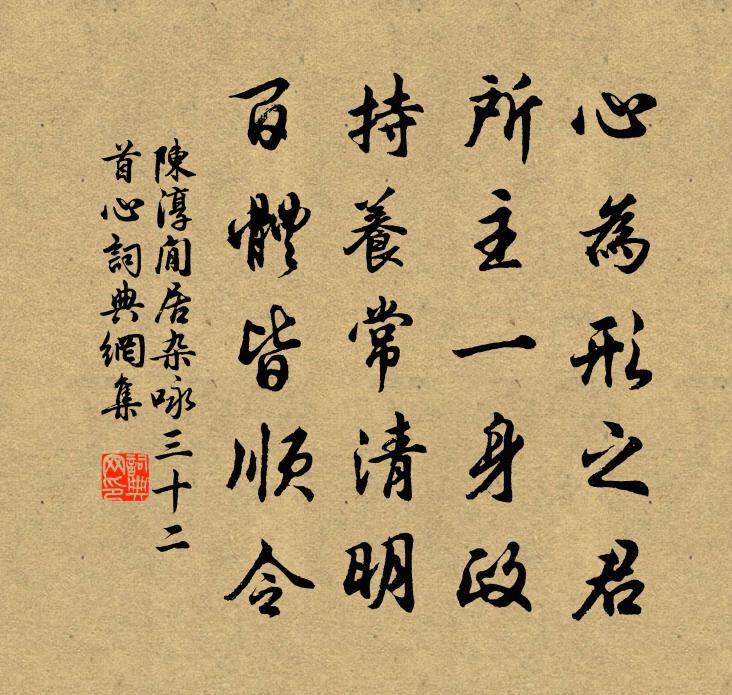 心為形之君
所主一身政
持養常清明
百體皆順令
陳淳閒居杂咏三十二
首心詞典網集
詞典
网印